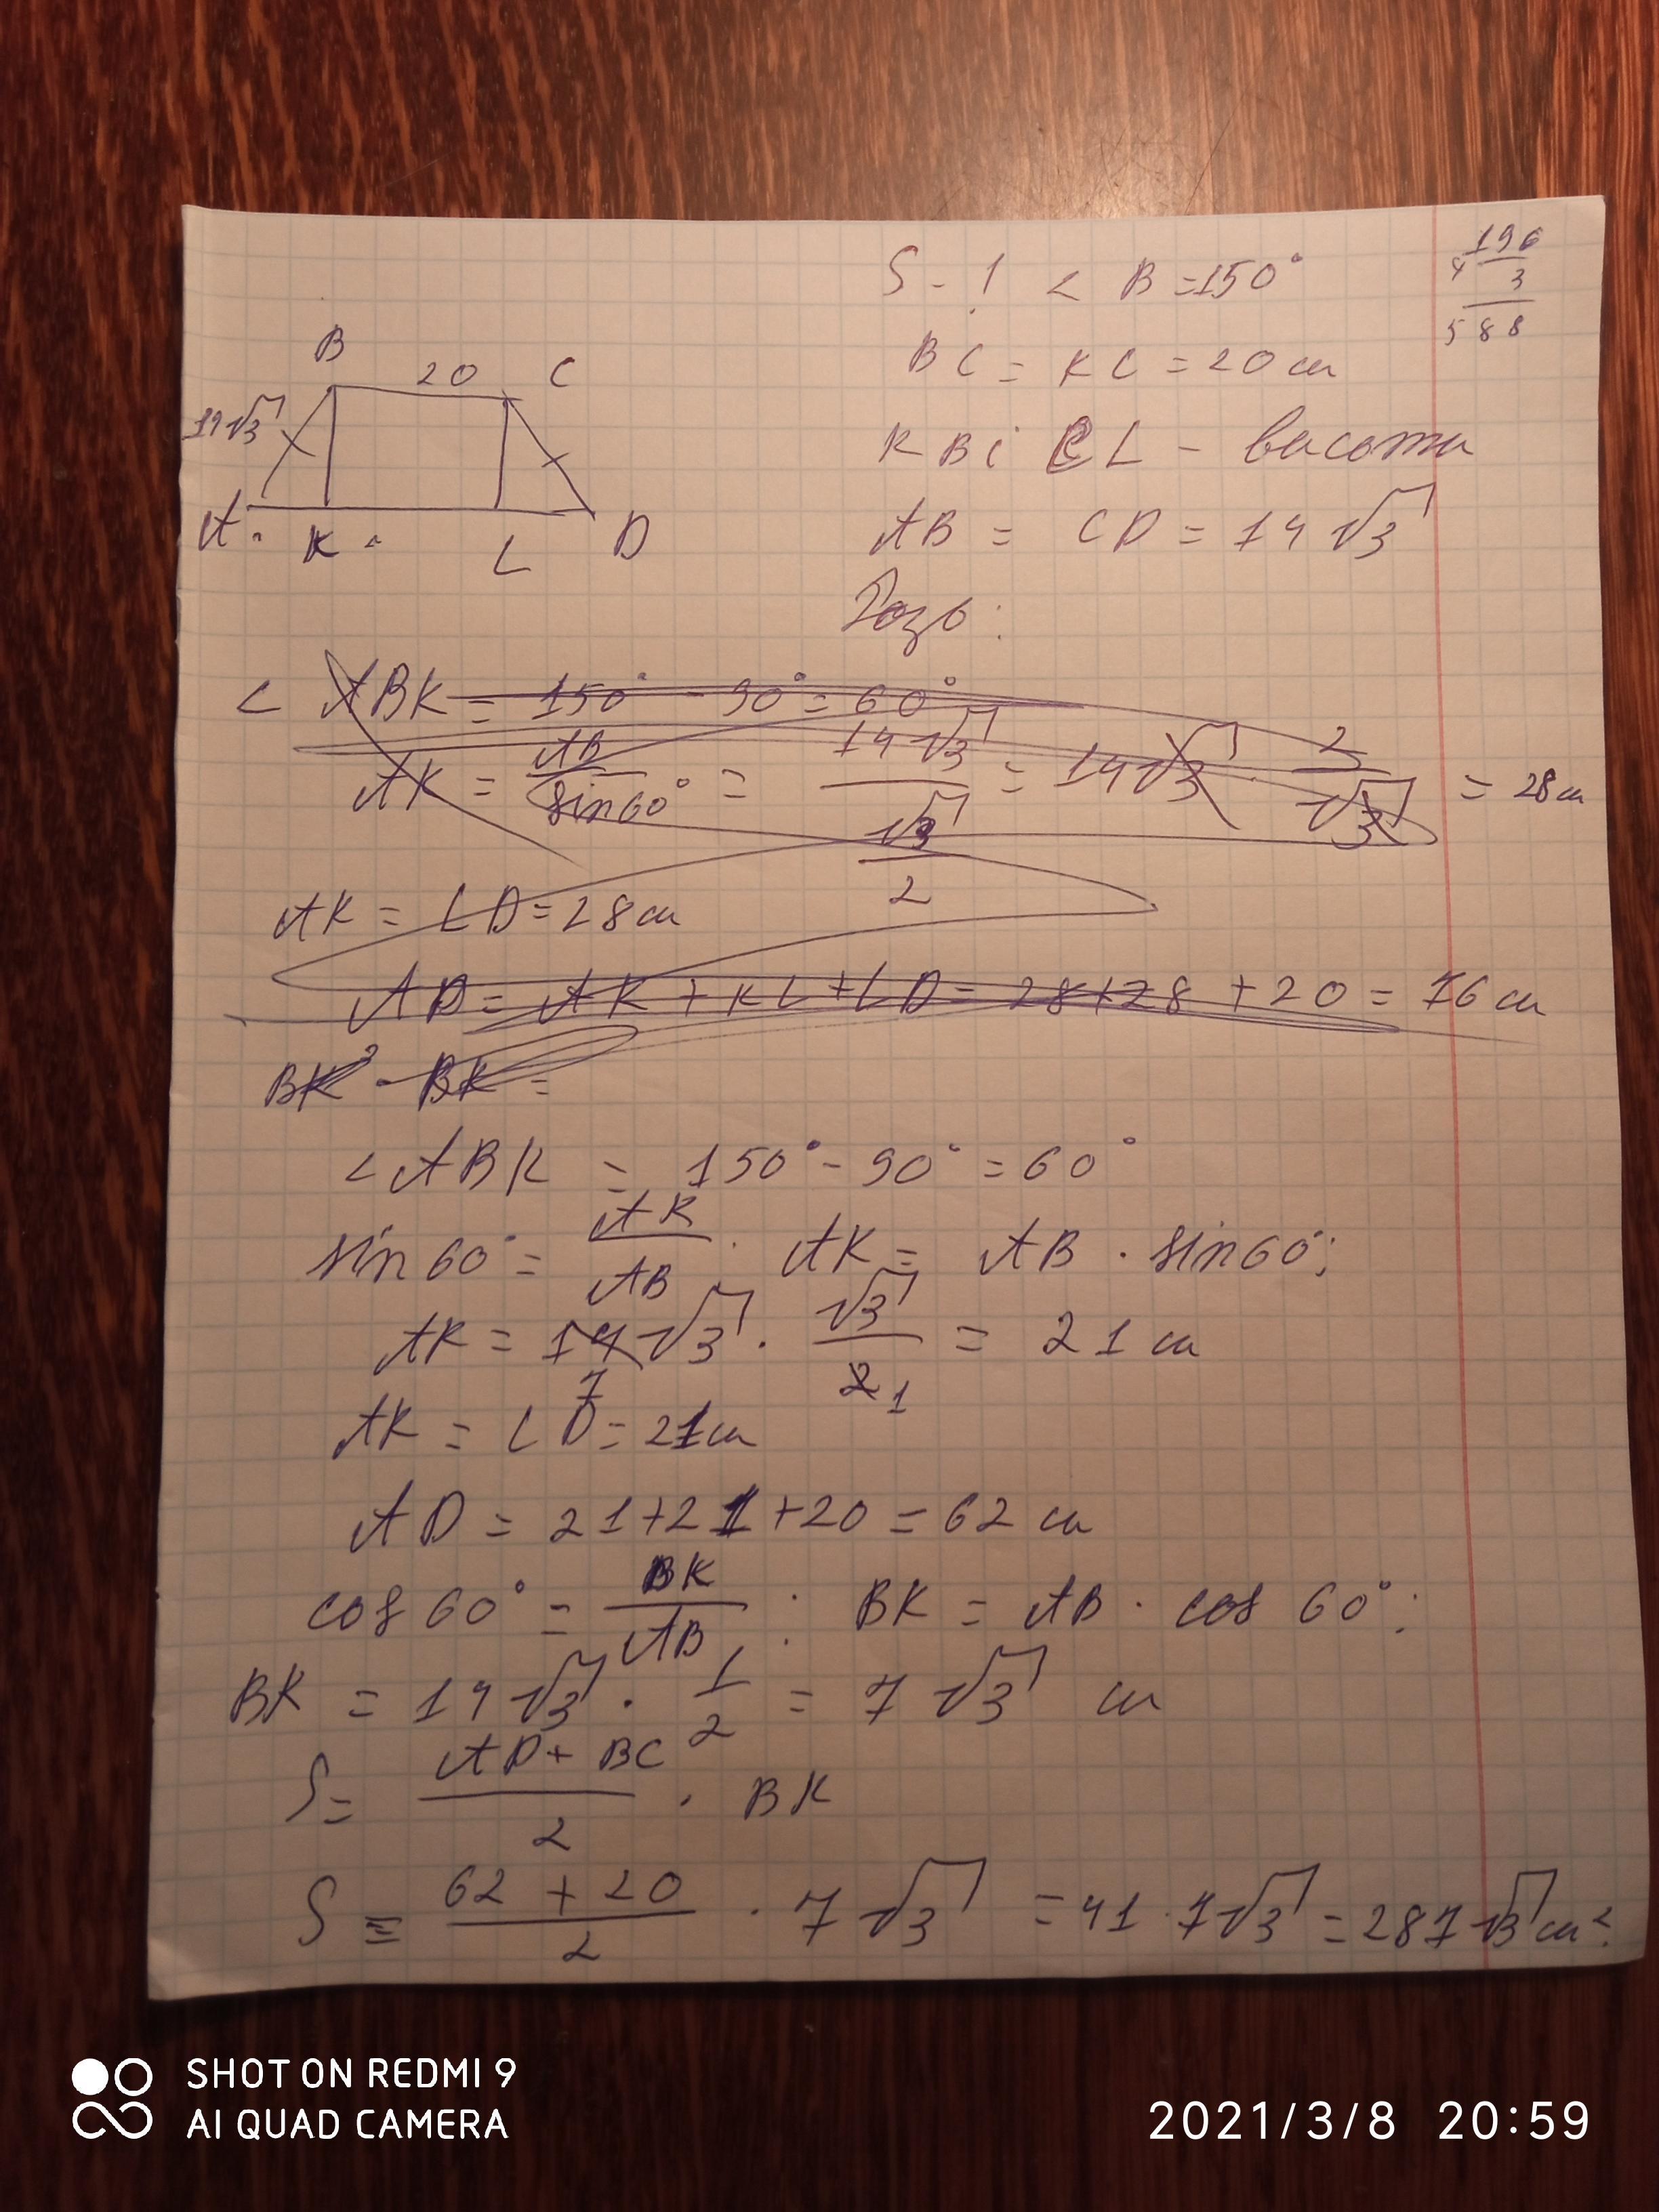 S - ! < B = 150°
196
4 3
588
B 20 C
BC = KC = 20 см
14√3
KB і CL - висоти
A K L D
AB = CD = 14√3
Розв:
< ABK = 150° - 90° = 60°
AK = AB/sin60° = 14√3/(√3/2) = 14√3 · 2/√3 = 28 см
AK = LD = 28 см
AD = AK + KL + LD = 28 + 28 + 20 = 76 см
BK² - BK =
< ABK = 150° - 90° = 60°
sin 60° = AK/AB . AK = AB · sin60°;
AK = 14√3 · √3/2 = 21 см
7 1
AK = LD = 21 см
AD = 21 + 21 + 20 = 62 см
cos 60° = BK/AB ; BK = AB · cos 60°;
BK = 14√3 · 1/2 = 7√3 см
S = (AD + BC)/2 · BK
S = (62 + 20)/2 · 7√3 = 41 · 7√3 = 287√3 см².
SHOT ON REDMI 9
AI QUAD CAMERA
2021/3/8 20:59